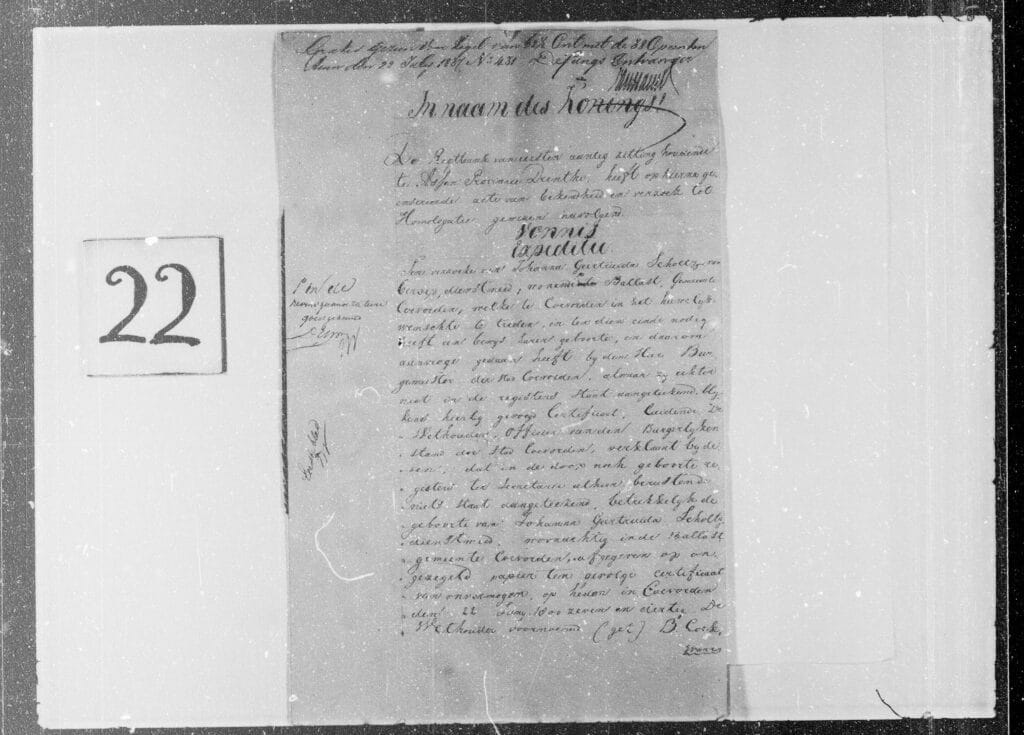 22
Gratis gezien den Zegel van
den 22 July 1837 N: 431 De Ontvanger
In naam des Konings!
De Regtbank van eersten aanleg zitting houdende
te Assen Provincie Drenthe, heeft op hierna ge
insereerde acte van bekendheid en verzoek tot
Homologatie gewezen navolgend
Vonnis
Expeditie
Ten verzoeke van Johanna Geertruida Scholtz, van
beroep dienstmeid, wonende Ballast, Gemeente
Coevorden, welke te Coevorden in het huwelijk
wenschte te treden, en tot dien einde nodig
heeft een bewys harer geboorte, en daarom
aanvrage gedaan heeft by den Heer Bur
gemeester der stad Coevorden, alwaar zy echter
niet in de registers staat aangeteekend, bly
kens hierby gevoegd Certificaat, luidende De
Wethouder, Officier van den Burgerlyken
stand der stad Coevorden, verklaart by de
zen, dat in de doop noch geboorte re
gisters ter Secretarie alhier berustende
niets staat aangeteekend, betrekkelyk de
geboorte van Johanna Geertruida Scholtz
dienstmeid, woonachtig in de Ballast
gemeente Coevorden, afgegeven op on
gezegeld papier ten gevolge certificaat
van onvermogen, op heden in Coevorden
den 22 Juny 1800 zeven en dertig De
Wethouder voornoemd (get) B Cock,